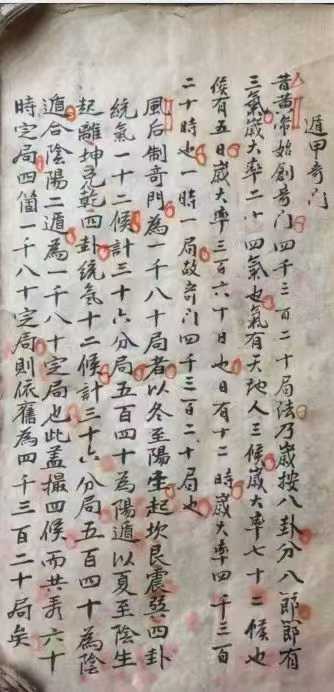 遁甲奇门
昔黄帝始創奇门四千三百二十局法乃歲按八卦分八節節有
三氣歲大率二十四氣也氣有天地人三候歲大率七十二候也
候有五日歲大率三百六十日也日有十二時歲大率四千三百
二十時也一時一局故奇门四千三百二十局也
風后制奇門為一千八十局者以冬至陽生起坎艮震巽四卦
統氣一十二候計三十六分局五百四十為陽遁以夏至陰生
起離坤兌乾四卦統氣十二候計三十六分局五百四十為陰
遁合陰陽二遁為一千八十定局也此盖撮四候而共為六十
時定局四箇一千八十定局則依舊為四千三百二十局矣